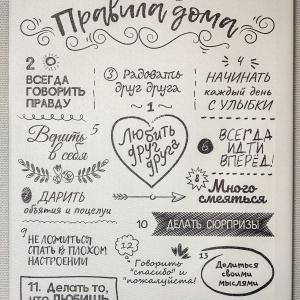 Правила дома
2
ВСЕГДА
ГОВОРИТЬ
ПРАВДУ
3 Радовать
друг друга
4
НАЧИНАТЬ
каждый день
С УЛЫБКИ
1
Любить
друг
друга
Верить 5
в себя
6
ВСЕГДА
ИДТИ
ВПЕРЁД!
7 ДАРИТЬ
объятия и поцелуи
8
Много
смеяться
9 НЕ ЛОЖИТЬСЯ
СПАТЬ В ПЛОХОМ
НАСТРОЕНИИ
10 ДЕЛАТЬ СЮРПРИЗЫ
12
Говорить
"спасибо" и
"пожалуйста!"
13
Делиться
своими
мыслями
11. Делать то,
что ЛЮБИШЬ